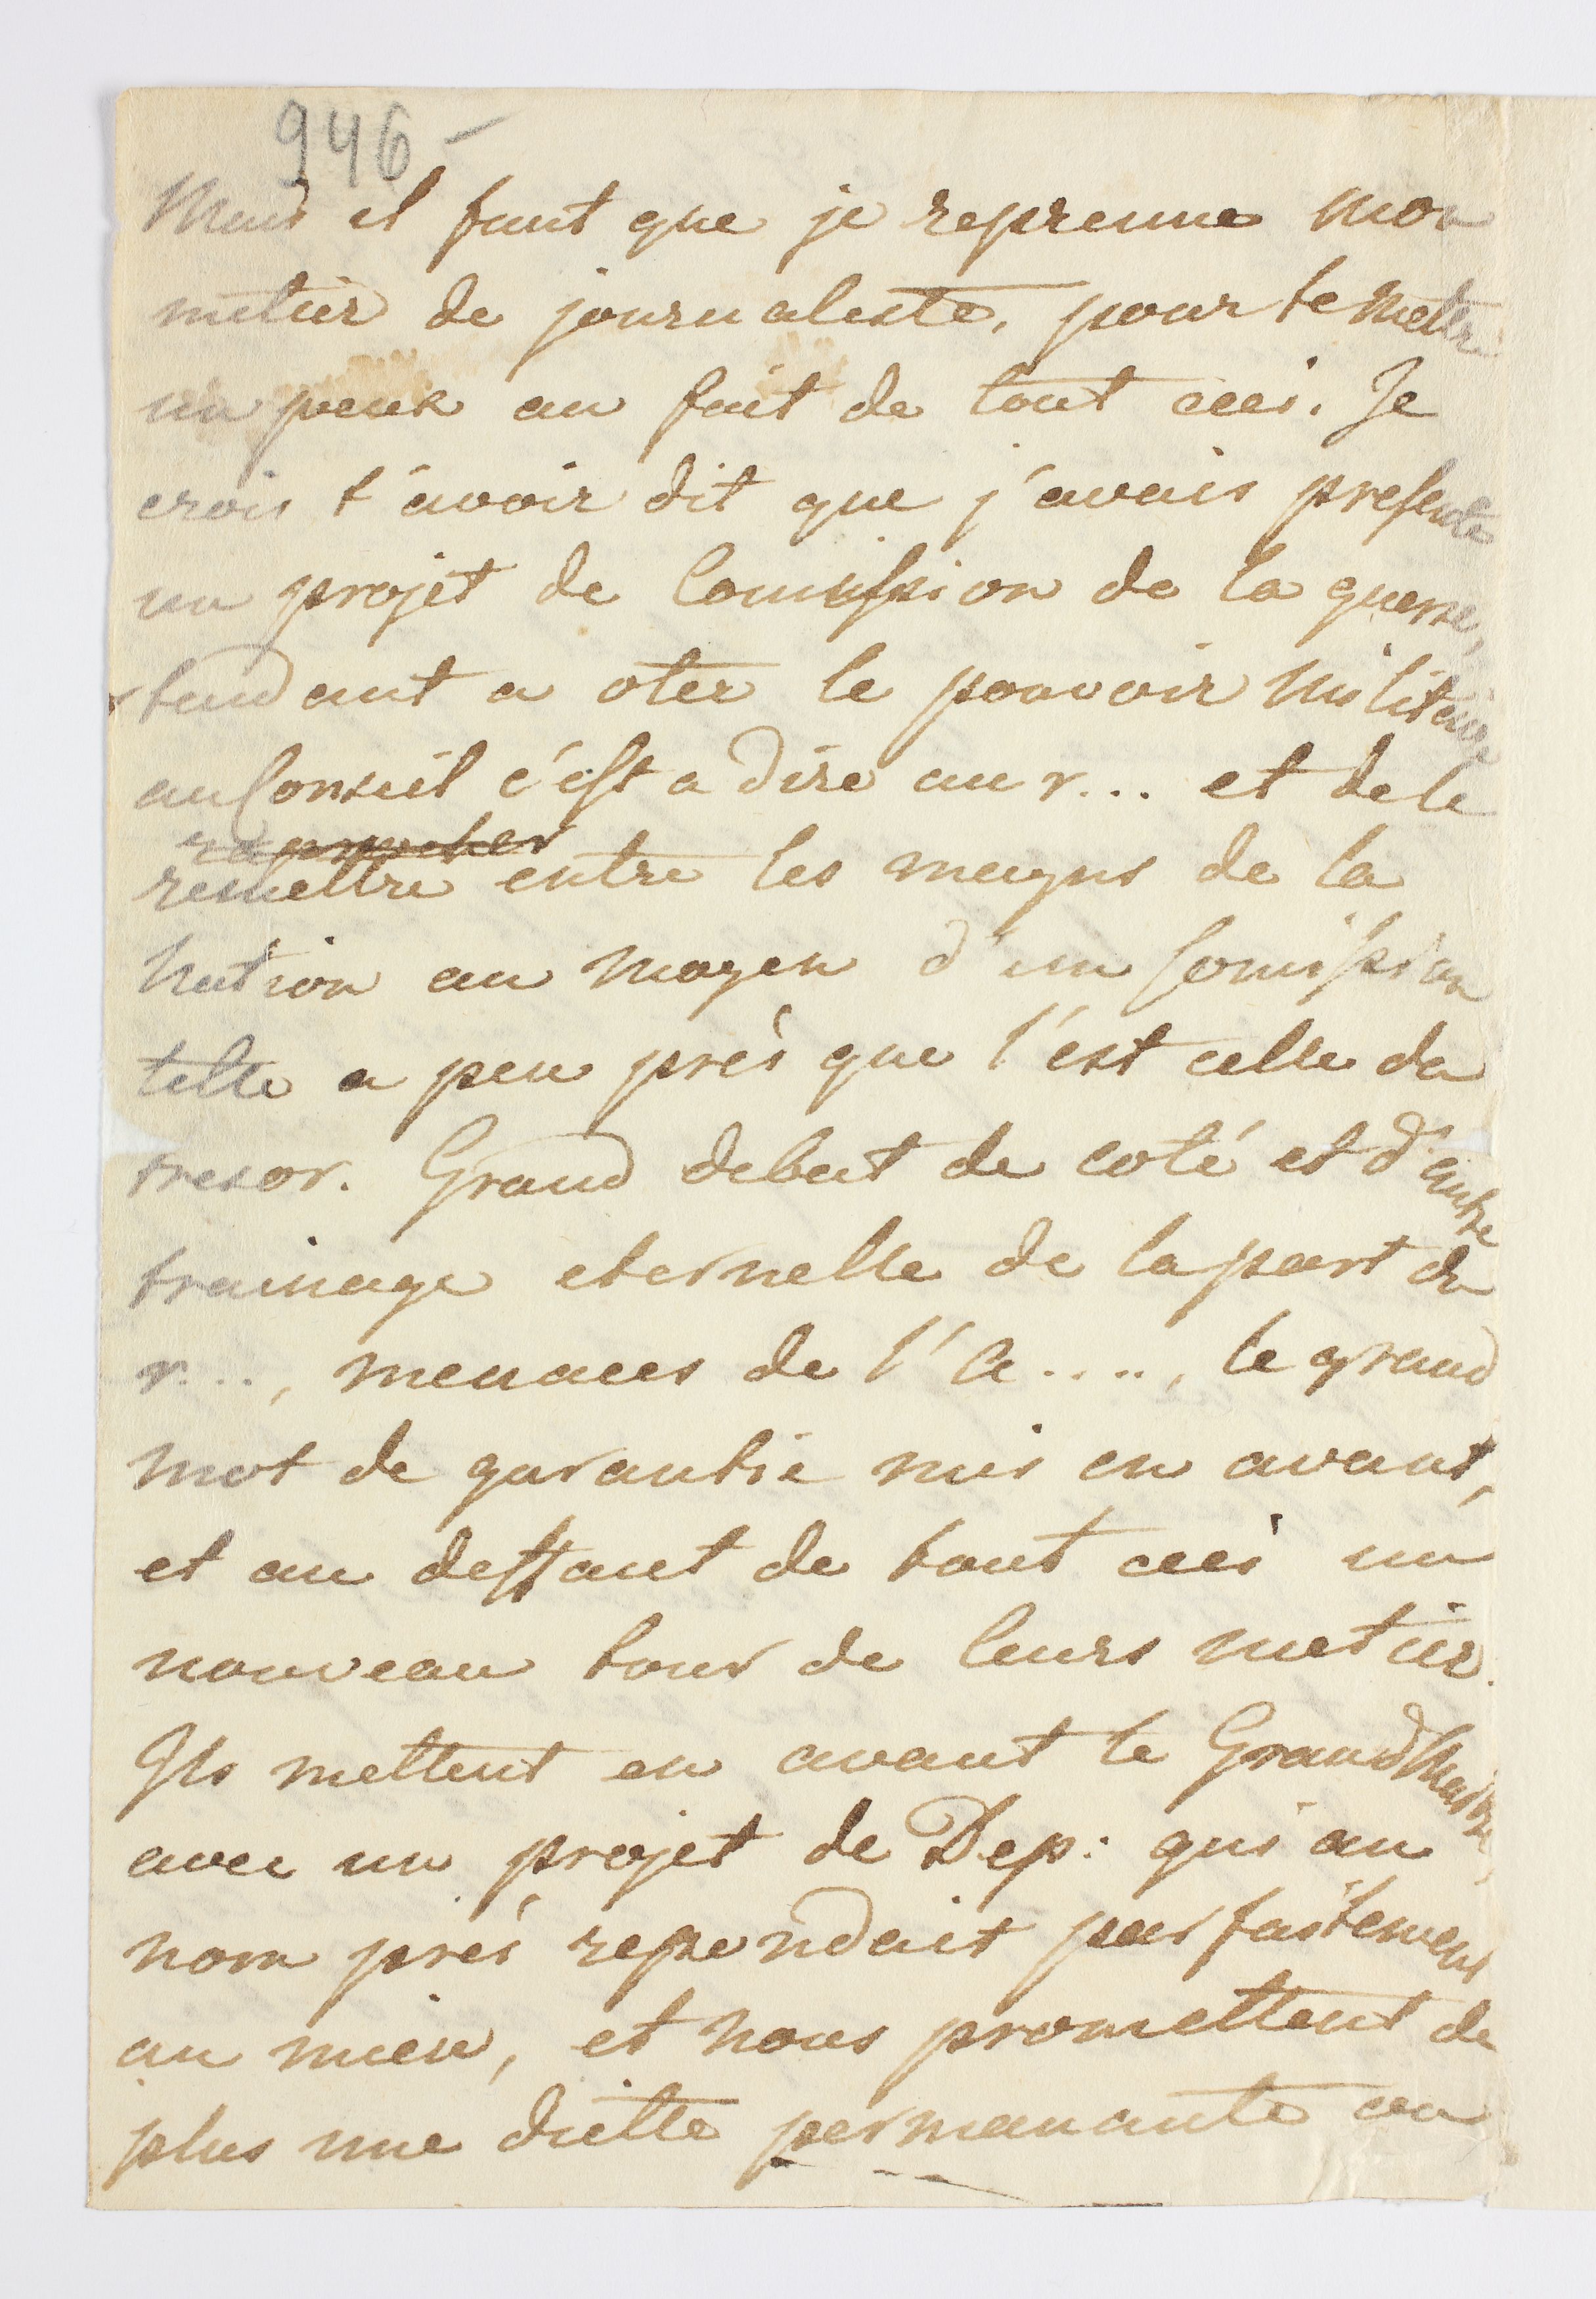 946 -
Mais il faut que je reprenne mon
metier de journaliste, pour te metre
un peux au fait de tout ceci. Je
crois t'avoir dit que j'avais presenté
un projet de Comission de la guerre,
tendant a oter le pouvoir militaire
au Conseil c'est a dire au r... et de le
raprocher
remettre entre les mayns de la
Nation au moyen d'un Comission
telle a peu près que l'est celle du
tresor. Grand debat de coté et d'autre
trainage eternelle de la part du
r..., menaces de l'A...., le grand
mot de garantie mis en avant,
et au deffaut de tout ceci un
nouveau tour de leurs metier.
Ils mettent en avant le Grand Maitre,
avec un projet de Dep: qui au
nom près repondait parfaitement
au mien, et nous promettent de
plus une diette permanante ou